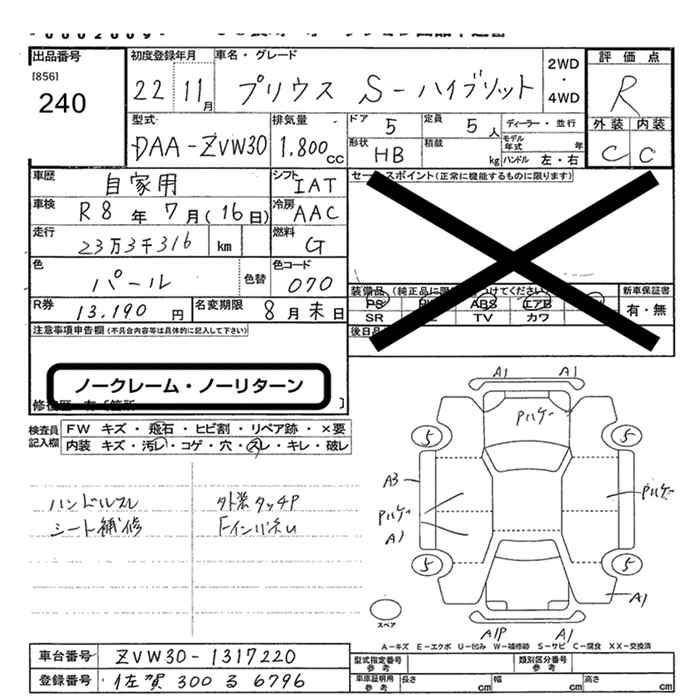 出品番号 初度登録年月 車名・グレード 2WD・4WD 評価点
[856]
240 22 11月 プリウス S-ハイブリット R
型式 排気量 ドア 5 定員 5人 ディーラー・並行 外装 内装
DAA-ZVW30 1.800cc 形状 HB 積載 kg モデル年式 年 ハンドル 左・右 C C
車歴 自家用 シフト IAT セールスポイント(正常に機能するものに限ります)
車検 R8年7月(16日) 冷房 AAC
走行 23万3千316 km 燃料 G
色 パール 色替 色コード 070
装備品 新車保証書
PS ABS エアB
SR TV カワ 有・無
R券 13.190円 名変期限 8月末日
注意事項申告欄(不具合内容等は具体的に記入して下さい) 後日品
ノークレーム・ノーリターン
検査員記入欄 FW キズ・飛石・ヒビ割・リペア跡・×要
内装 キズ・汚レ・コゲ・穴・スレ・キレ・破レ
ハンドルスレ 外装タッチP
シート補修 Fインパネム
A1 A1
Pハゲー
5 5
A3
Pハゲー Pハゲー
A1
5 5
A1
スペア
A1P A1
A-キズ E-エクボ U-凹み W-補修跡 S-サビ C-腐食 XX-交換済
車台番号 ZVW30-1317220 型式指定番号 参考 類別区分番号 参考
登録番号 佐賀 300 る 6796 車庫証明用 参考 長さ cm 幅 cm 高さ cm